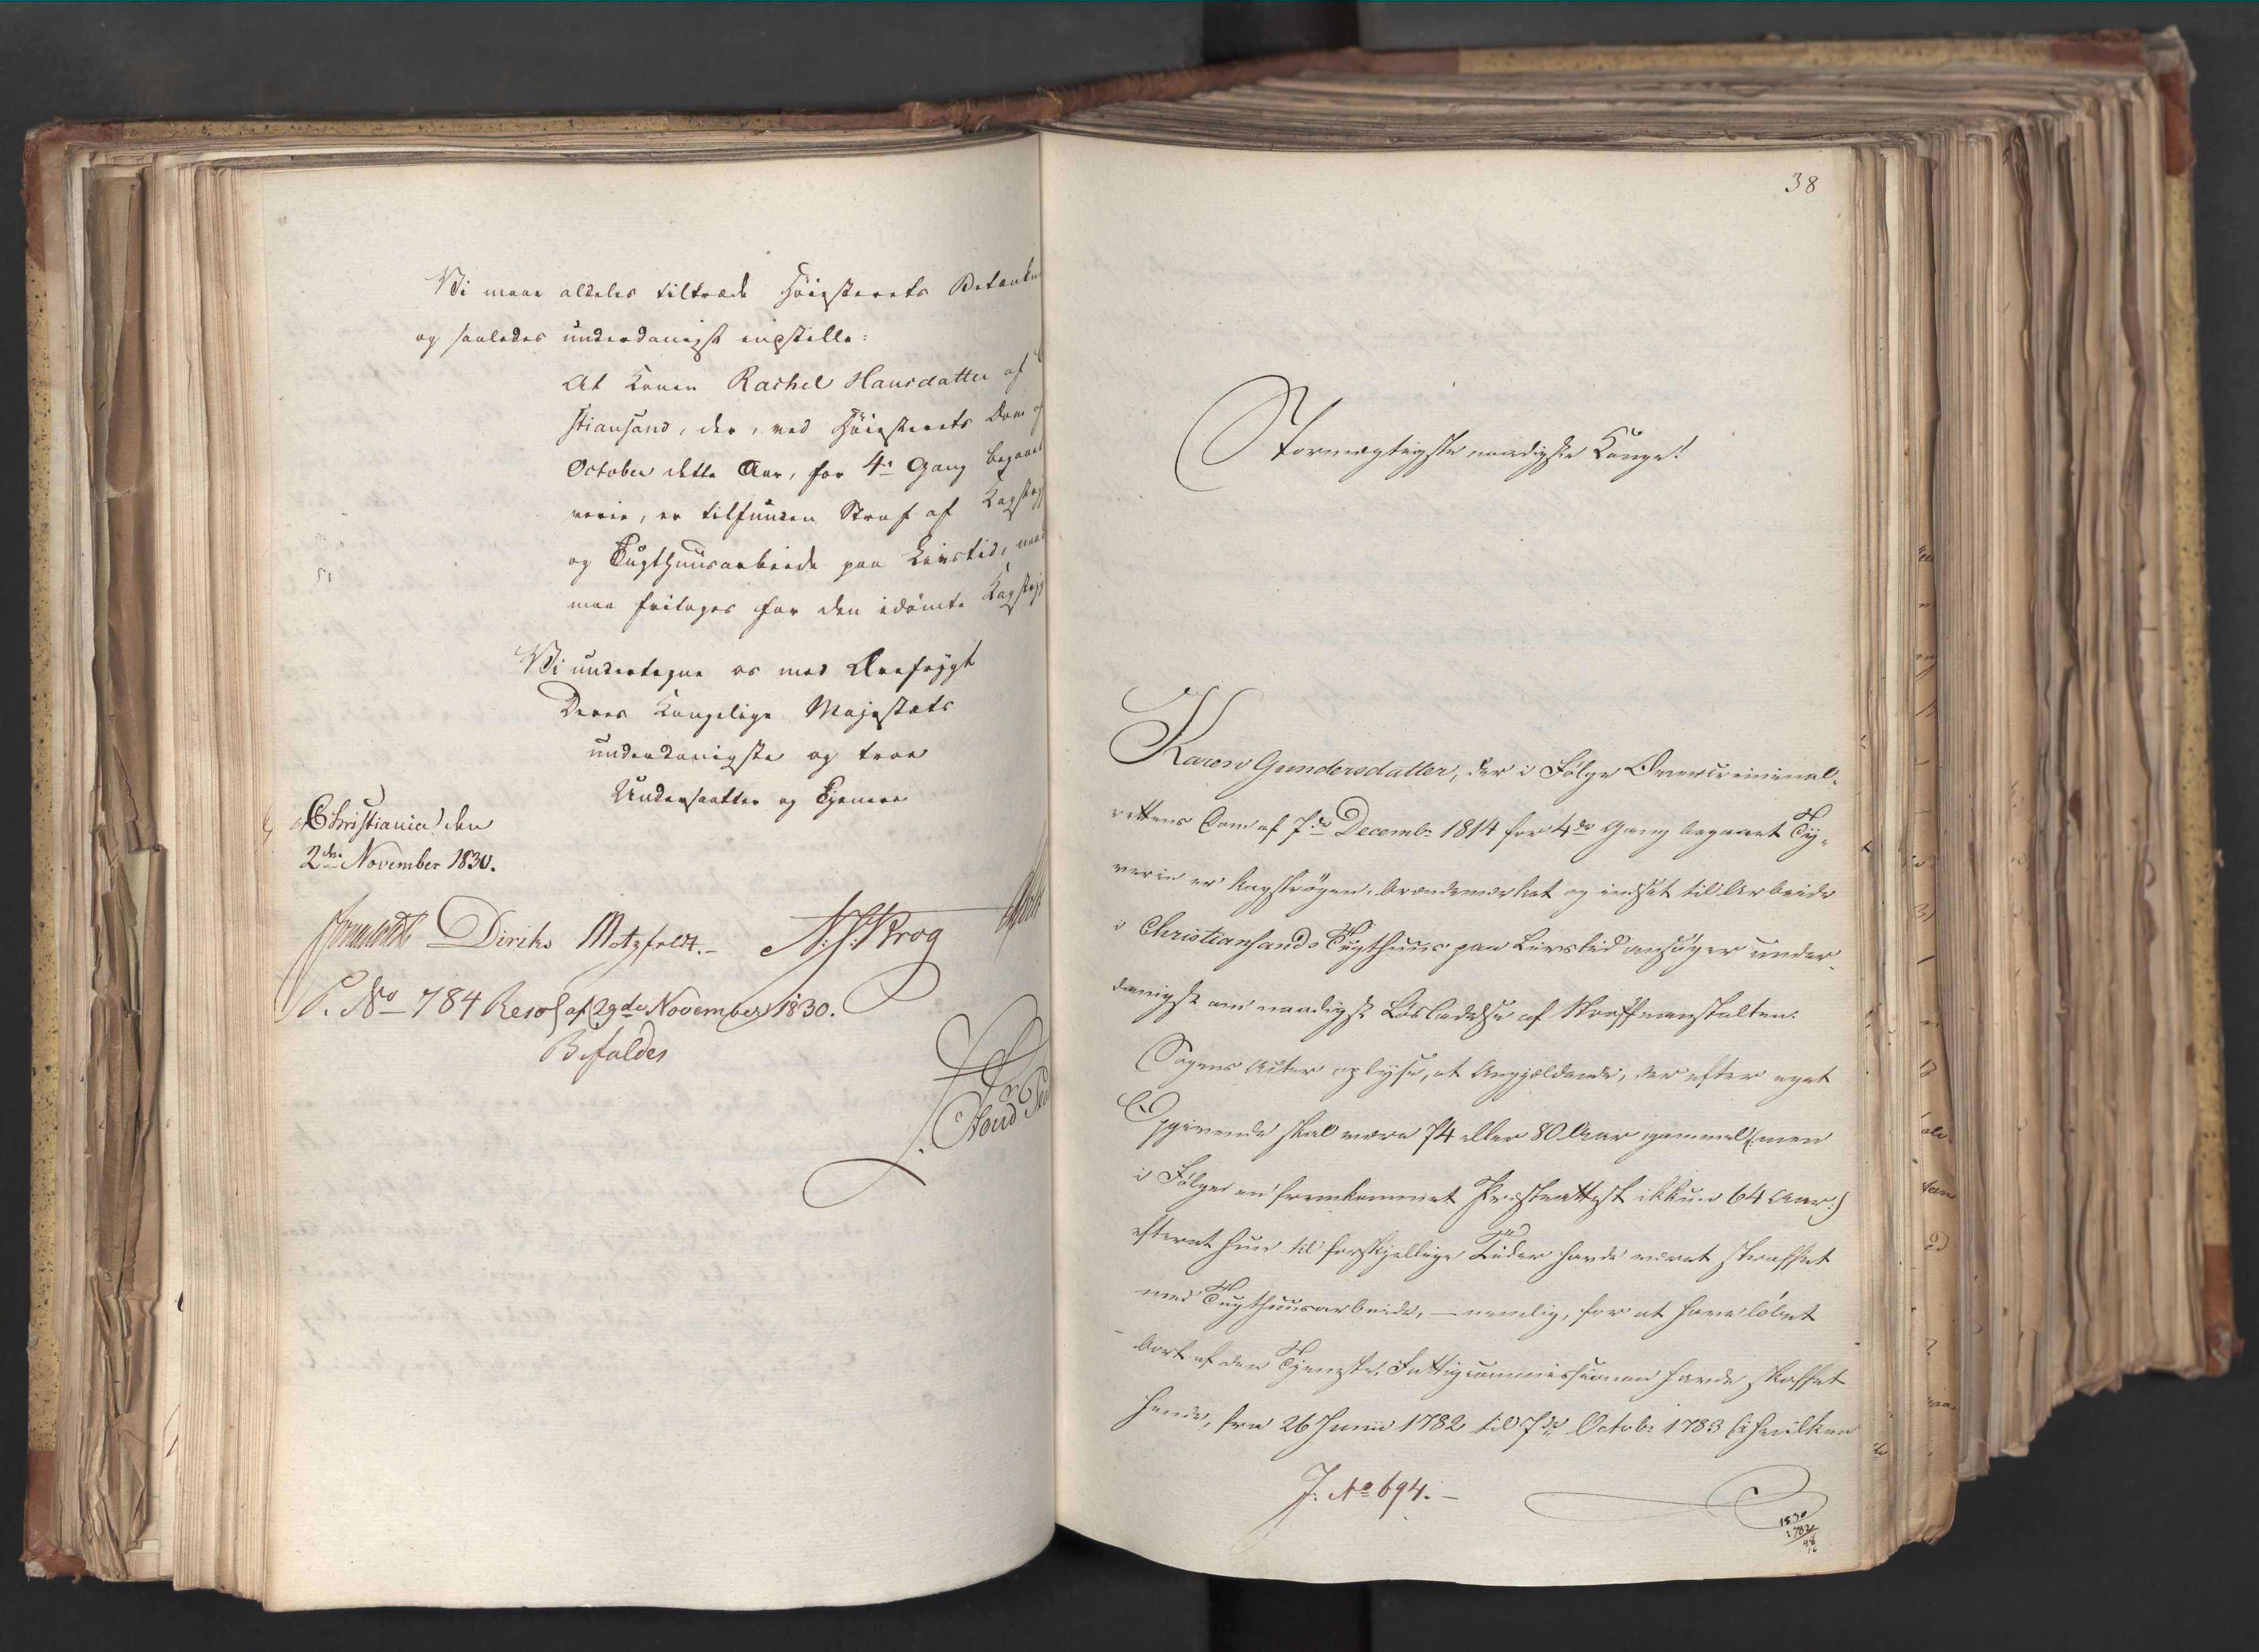 Vi maae aldeles tiltræde Høiesterets Betænkn
og saaledes underdanigst indstille:
At Konen Rachel Hansdatter af
stiansand, der, ved Høiesterets Dom
October dette Aar, for 4de Gang begaaet
verie, er tilfunden Straf af Kagstry
og Tugthuusarbeide paa Livstid,
maa fritages for den idömte Kagstry
Vi undertegne os med Ærefrygt
Deres Kongelige Majestæts
underdanigste og troe
Undersaatter og Tjenere
Christiania den
2den November 1830.
Diriks Motzfeldt. N. J. Krog
P. No 784 Resol af 29de November 1830.
Befaldes
38
Stormægtigste naadigste Konge!
Karen Gundersdatter, der i Følge Overcriminal-
rettens Dom af 7de Decembr 1814 for 4de Gang begaaet Ty-
verie er kagstrøgen, brændemærket og indsat til Arbeide
i Christiansands Tugthuus paa Livstid ansøger under-
danigst om naadigst Løsladelse af Straffeanstalten.
Sagens Acter oplyse, at Angjældende, der efter eget
Opgivende skal være 74 eller 80 Aar gammel (: men
i Følge en fremkommet Præsteattest ikkun 64 Aar :)
efterat hun til forskjellige Tider havde været straffet
med Tugthuusarbeide, – nemlig, for at have løbet
bort af den Tjeneste, Fattigcommissionen havde skaffet
hende, fra 26 Junii 1782 til 7de Octobr 1783 (: i hvilken
J. No 694. –
1830
1782
48